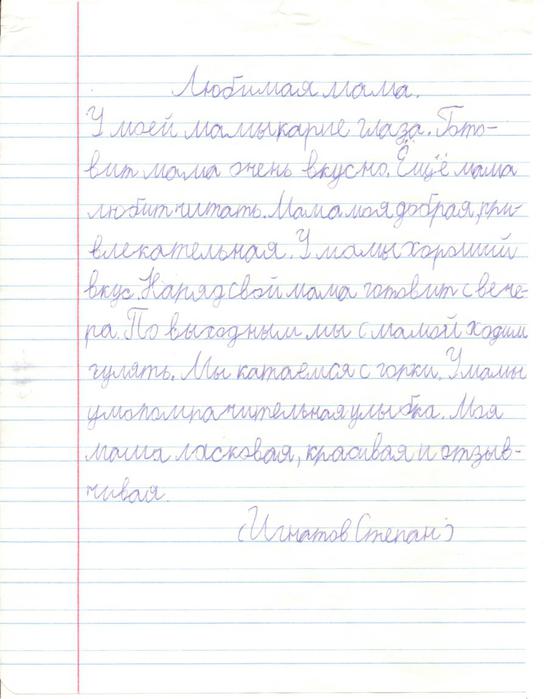 Любимая мама.
У моей мамы карие глаза. Гото-
вит мама очень вкусно. Ещё мама
любит читать. Мама моя добрая, при-
влекательная. У мамы хороший
вкус. Наряд свой мама готовит с вече-
ра. По выходным мы с мамой ходим
гулять. Мы катаемся с горки. У мамы
умопомрачительная улыбка. Моя
мама ласковая, красивая и отзыв-
чивая.
(Игнатов Степан)